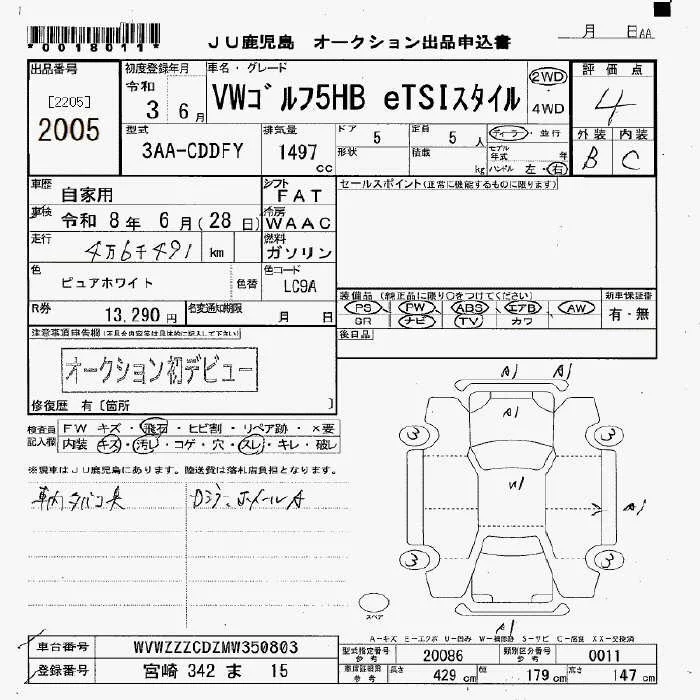 *0018011*
JU鹿児島 オークション出品申込書
月 日AA
出品番号
[2205]
2005
初度登録年月
令和
3 6月
車名・グレード
VWゴルフ5HB eTSIスタイル
2WD
4WD
評価点
4
型式
3AA-CDDFY
排気量
1497 cc
ドア 5
定員 5人
形状
積載 kg
ディーラ・並行
モデル年式 年
ハンドル 左・右
外装 内装
B C
車歴 自家用
シフト FAT
セールスポイント(正常に機能するものに限ります)
車検 令和 8年 6月(28日)
冷房 WAAC
走行 4万6千491 km
燃料 ガソリン
色 ピュアホワイト
色替
色コード LC9A
R券 13,290円
名変通知期限 月 日
装備品(純正品に限り○をつけてください)
PS PW ABS エアB AW
SR ナビ TV カワ
新車保証書
有・無
後日品
注意事項申告欄(不具合内容等は具体的に記入して下さい)
オークション初デビュー
修復歴 有〔箇所 〕
検査員記入欄
FW キズ・飛石・ヒビ割・リペア跡・×要
内装 キズ・汚レ・コゲ・穴・スレ・キレ・破レ
※現車はJU鹿児島にあります。陸送費は落札店負担となります。
車内タバコ臭
A1 A1
A1
3 3
W1
A1
3 3
スペア
A1
A-キズ E-エクボ U-凹み W-補修跡 S-サビ C-腐食 XX-交換済
車台番号 WVWZZZCDZMW350803
登録番号 宮崎 342 ま 15
型式指定番号 参考 20086
類別区分番号 参考 0011
車検証記載 参考 長さ 429cm 幅 179cm 高さ 147cm